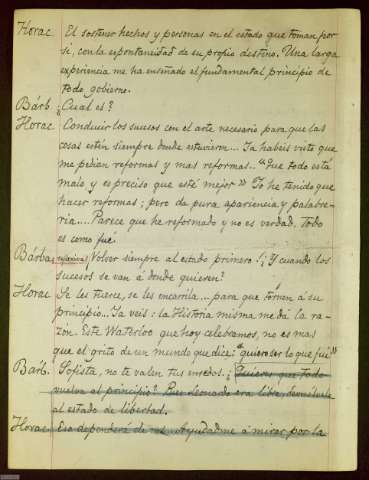 Horac El sostener hechos y personas en el estado que toman por
si, con la espontaneidad de su propio destino. Una larga
experiencia me ha enseñado el fundamental principio de
todo gobierno.
Bárb. ¿Cual es?
Horac Conducir los sucesos con el arte necesario para que las
cosas estén siempre donde estuvieron... Ya habeis visto que
me pedian reformas y mas reformas.. "Que todo está
malo, y es preciso que esté mejor" Yo he tenido que
hacer reformas; pero de pura apariencia y palabre-
ria.... Parece que he reformado y no es verdad. Todo
es como fué.
Bárba. Volver siempre al estado primero!¿Y cuando los
sucesos se van á donde quieren?
Horac Se les tuerce, se les encarila... para que tornen á su
principio.. Ya veis: la Historia misma me dá la ra-
zon. Este Waterloo que hoy celebramos, no es mas
que el grito de un mundo que dice: "quiero ser lo que fui"
Bárb. Sofista, no te valen tus enredos. ¿Quieres que todo
vuelva al principio? Pues Leonardo era libre, devuelvele
al estado de libertad.
Horac Eso dependerá de Ayudadme á mirar por la